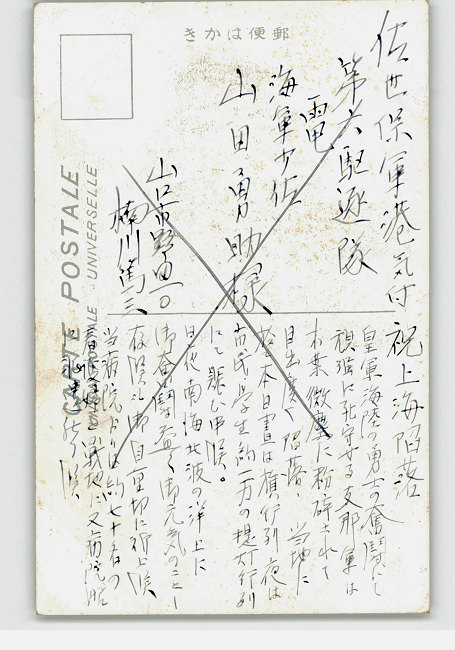 郵便はかき
CARTE POSTALE
UNION POSTALE UNIVERSELLE
佐世保軍港気付
第六駆逐隊
電
海軍少佐
山田勇助様
山口市野田一〇
楠川篤三
祝上海陥落
皇軍海陸の勇士の奮闘にて
頑強に死守せる支那軍は
木葉微塵に粉砕されて
目出度く陥落、当地に
於本日昼は旗行列夜は
市民学生約一万の提灯行列
にて賑む申候。
時代南海北波の洋上に
御奮闘益々御元気のことゝ
存候も御自重切に祈上候
当病院よりは約七十名の
戦地に又病院船